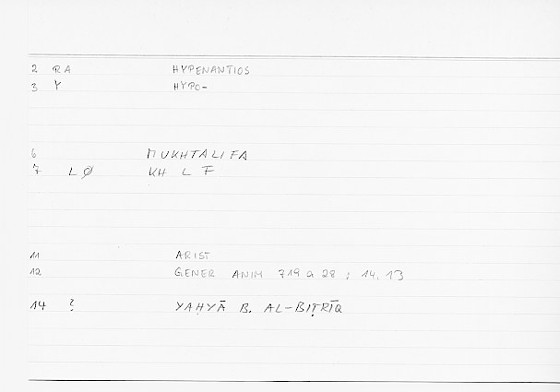 2 RA HYPENANTIOS
3 Y HYPO-
6 MUKHTALIFA
7 LØ KH L F
11 ARIST
12 GENER ANIM 719 a 28 ; 14.13
14 ? YAḤYĀ B. AL-BIṬRĪQ